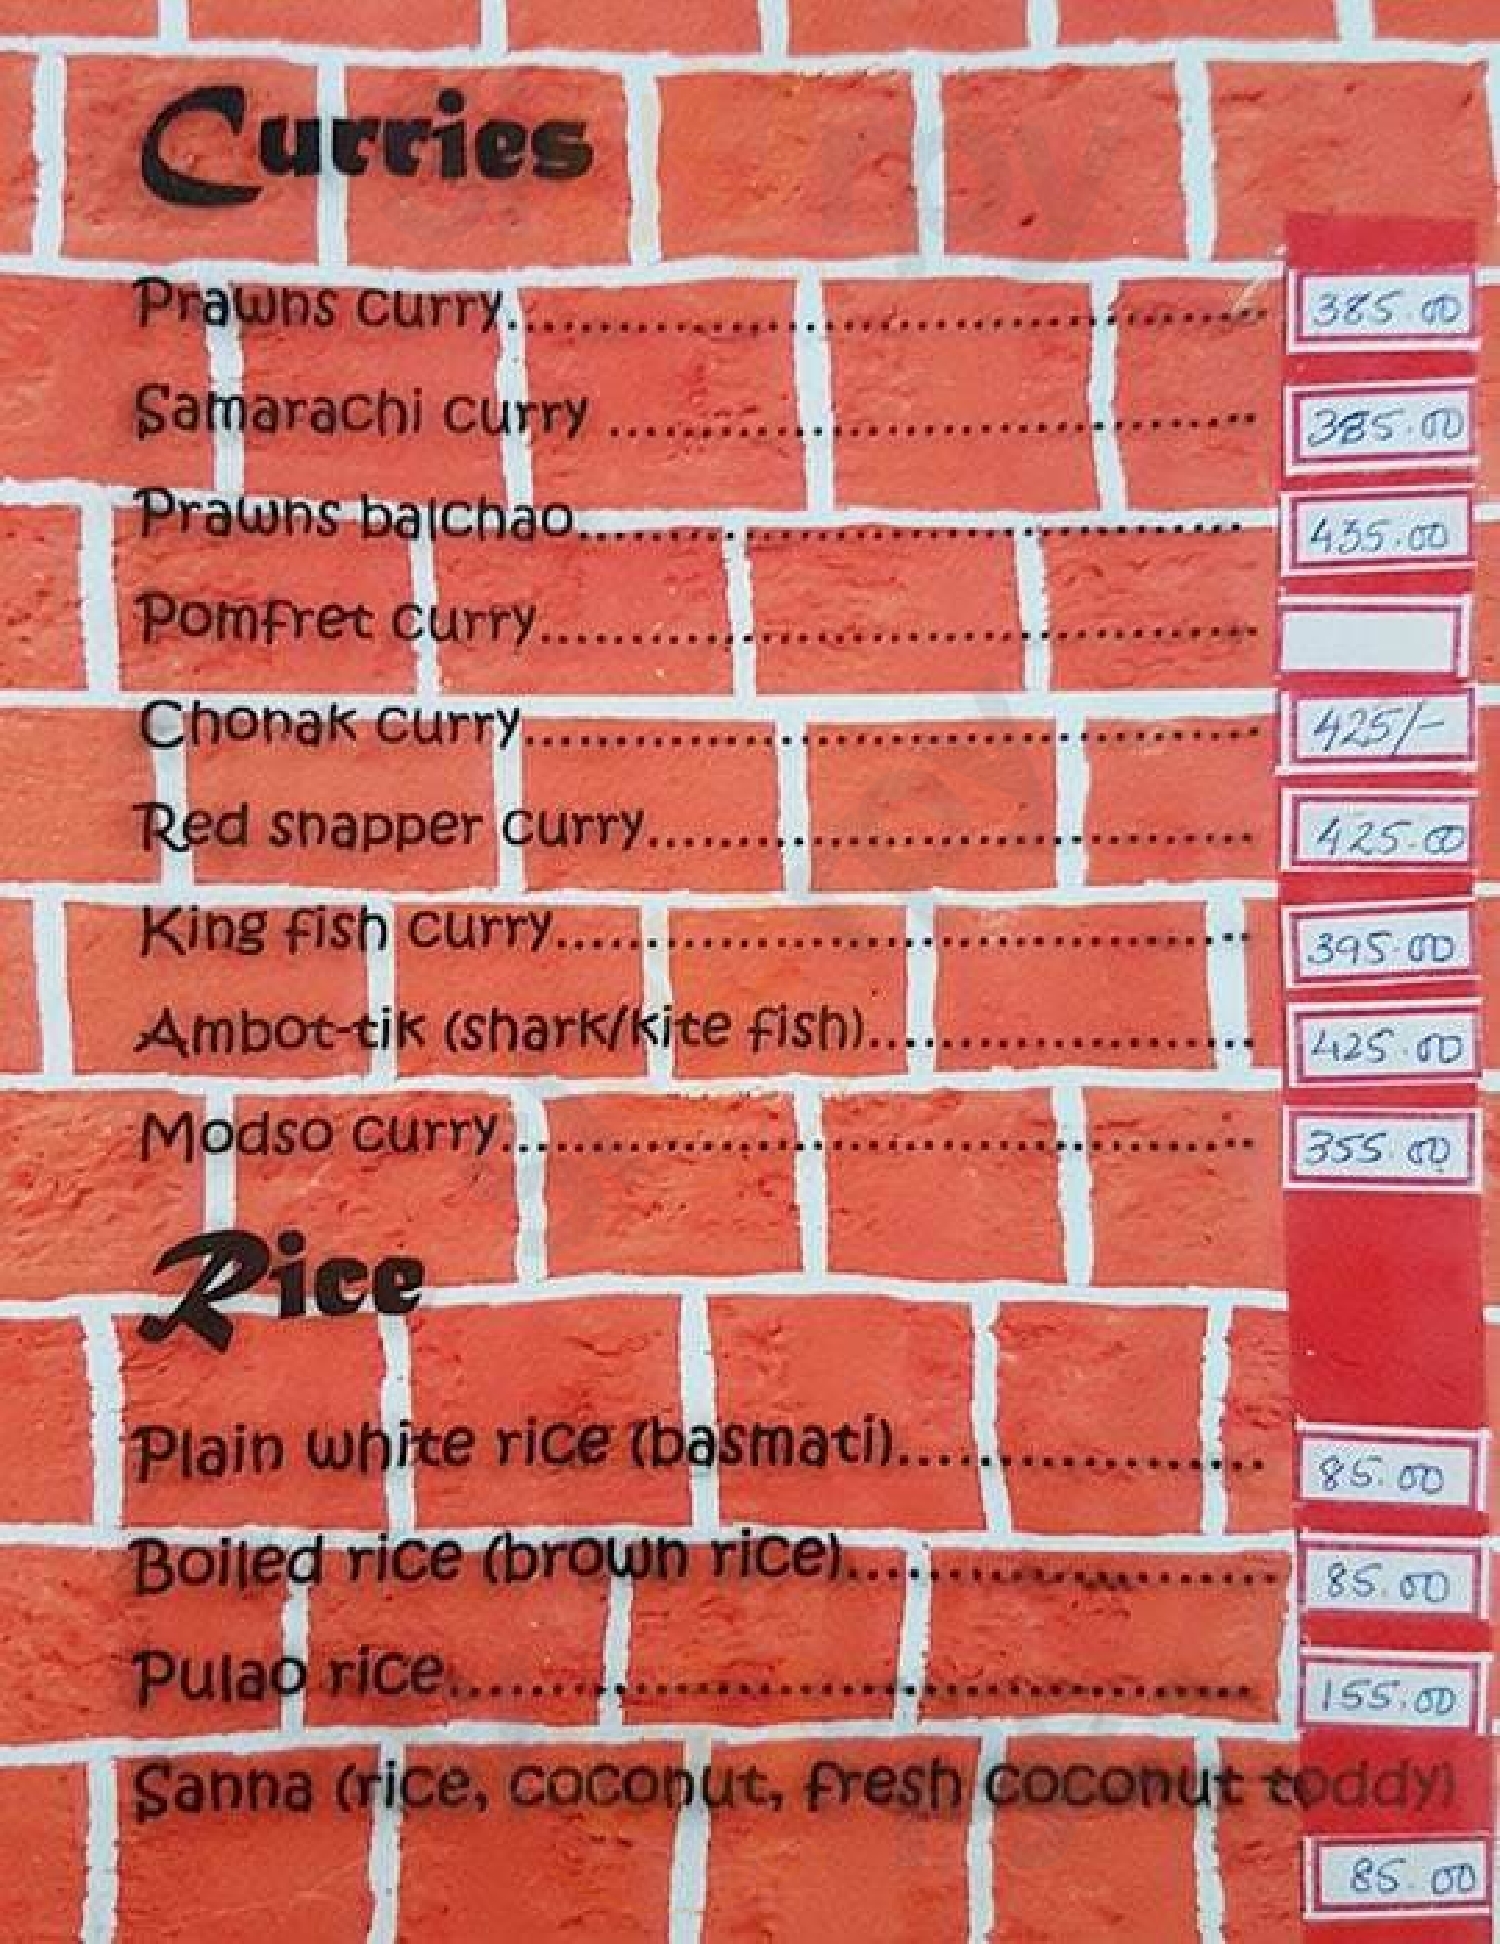 Curries
Prawns curry.......... 385.00
Samarachi curry .......... 385.00
Prawns balchao.......... 435.00
Pomfret curry..........
Chonak curry.......... 425/-
Red snapper curry.......... 425.00
King fish curry.......... 395.00
Ambot-tik (shark/kite fish).......... 425.00
Modso curry.......... 355.00
Rice
Plain white rice (basmati).......... 85.00
Boiled rice (brown rice).......... 85.00
Pulao rice.......... 155.00
Sanna (rice, coconut, fresh coconut toddy)
85.00